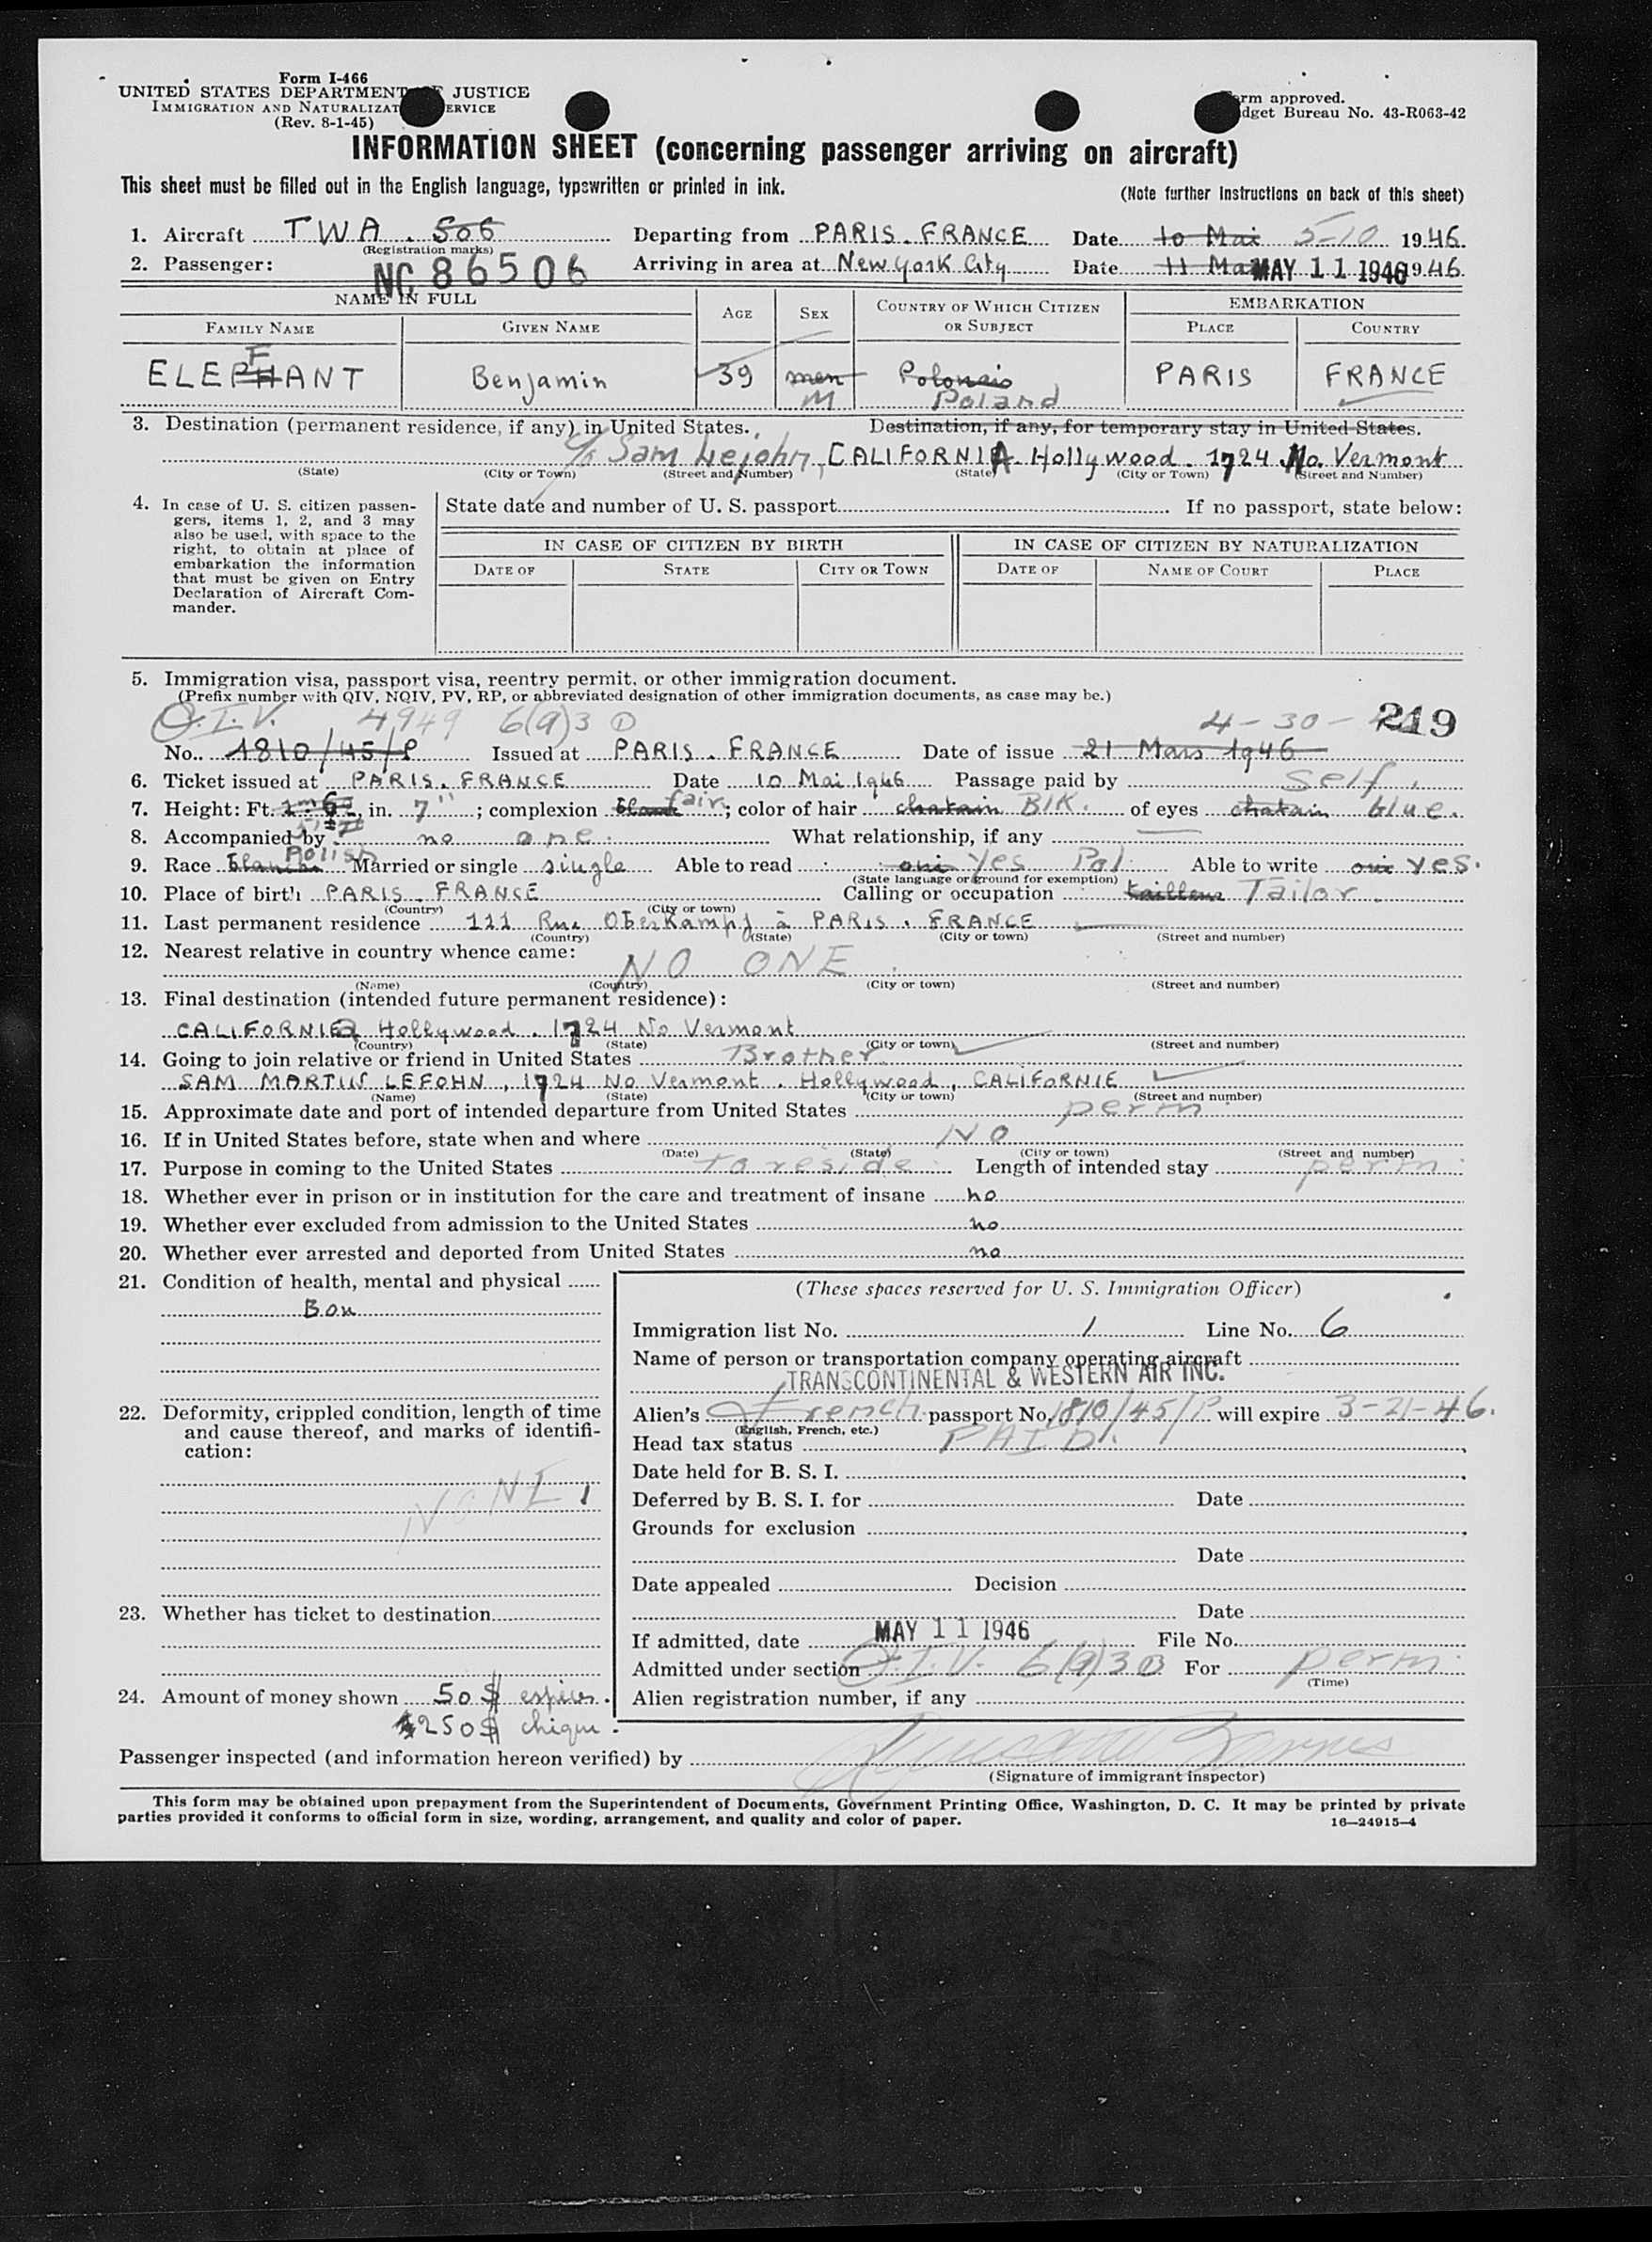 Form I-466
UNITED STATES DEPARTMENT OF JUSTICE
IMMIGRATION AND NATURALIZATION SERVICE
(Rev. 8-1-45)
Form approved.
Budget Bureau No. 43-R063-42
INFORMATION SHEET (concerning passenger arriving on aircraft)
This sheet must be filled out in the English language, typewritten or printed in ink.
(Note further instructions on back of this sheet)
1. Aircraft TWA. 506 Departing from PARIS. FRANCE Date 10 Mai 5-10 1946.
(Registration marks)
2. Passenger: NC 86506 Arriving in area at New york City Date 11 Mai MAY 11 1946 1946.
NAME IN FULL AGE SEX COUNTRY OF WHICH CITIZEN OR SUBJECT EMBARKATION
FAMILY NAME GIVEN NAME PLACE COUNTRY
F
ELEPHANT Benjamin 39 men Polonais PARIS FRANCE
M Poland
3. Destination (permanent residence, if any) in United States. Destination, if any, for temporary stay in United States.
c/o Sam Lejohn, CALIFORNIA. Hollywood. 1724 No. Vermont
(State) (City or Town) (Street and Number) (State) (City or Town) (Street and Number)
4. In case of U. S. citizen passengers, items 1, 2, and 3 may also be used, with space to the right, to obtain at place of embarkation the information that must be given on Entry Declaration of Aircraft Commander.
State date and number of U. S. passport If no passport, state below:
IN CASE OF CITIZEN BY BIRTH IN CASE OF CITIZEN BY NATURALIZATION
DATE OF STATE CITY OR TOWN DATE OF NAME OF COURT PLACE
5. Immigration visa, passport visa, reentry permit, or other immigration document.
(Prefix number with QIV, NQIV, PV, RP, or abbreviated designation of other immigration documents, as case may be.)
Q.I.V. 4949 6(a)3 4-30- 219
No. 1810/45/P Issued at PARIS. FRANCE Date of issue 21 Mars 1946
6. Ticket issued at PARIS. FRANCE Date 10 Mai 1946 Passage paid by Self.
7. Height: Ft. 1m62, in. 7"; complexion fair; color of hair chatain Blk. of eyes chatain blue.
8. Accompanied by no one. What relationship, if any
9. Race Blanche Polish Married or single single Able to read oui Yes Pol. Able to write oui yes.
(State language or ground for exemption)
10. Place of birth PARIS. FRANCE Calling or occupation tailleur Tailor.
(Country) (City or town)
11. Last permanent residence 111 Rue Oberkampf à PARIS. FRANCE
(Country) (State) (City or town) (Street and number)
12. Nearest relative in country whence came: NO ONE
(Name) (Country) (City or town) (Street and number)
13. Final destination (intended future permanent residence):
CALIFORNIEa Hollywood. 1724 No Vermont
(Country) (State) (City or town) (Street and number)
14. Going to join relative or friend in United States Brother
SAM MARTIN LEFOHN, 1724 No Vermont. Hollywood, CALIFORNIE
(Name) (State) (City or town) (Street and number)
15. Approximate date and port of intended departure from United States perm
16. If in United States before, state when and where NO
(Date) (State) (City or town) (Street and number)
17. Purpose in coming to the United States to reside Length of intended stay perm
18. Whether ever in prison or in institution for the care and treatment of insane no
19. Whether ever excluded from admission to the United States no
20. Whether ever arrested and deported from United States no
21. Condition of health, mental and physical
Bon
22. Deformity, crippled condition, length of time and cause thereof, and marks of identification:
NONE
23. Whether has ticket to destination
24. Amount of money shown 50 $ espèces.
250 $ chique.
(These spaces reserved for U. S. Immigration Officer)
Immigration list No. 1 Line No. 6
Name of person or transportation company operating aircraft
TRANSCONTINENTAL & WESTERN AIR INC.
Alien's French passport No. 1810/45/P will expire 3-21-46.
(English, French, etc.)
Head tax status PAID.
Date held for B. S. I.
Deferred by B. S. I. for Date
Grounds for exclusion
Date
Date appealed Decision
Date
If admitted, date MAY 11 1946 File No.
Admitted under section Q.I.V. 6(a)3 For perm.
(Time)
Alien registration number, if any
Passenger inspected (and information hereon verified) by
(Signature of immigrant inspector)
This form may be obtained upon prepayment from the Superintendent of Documents, Government Printing Office, Washington, D. C. It may be printed by private
parties provided it conforms to official form in size, wording, arrangement, and quality and color of paper.
16—24915-4